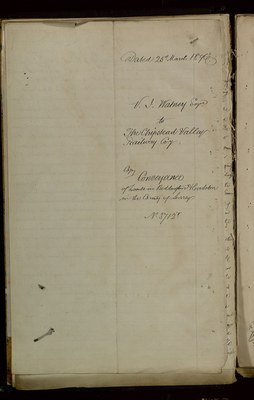 Dated 26th March 1897
V. J. Watney Esqre
to
The Chipstead Valley
Railway Coy
Copy
Conveyance
of Lands in
in the County of Surrey